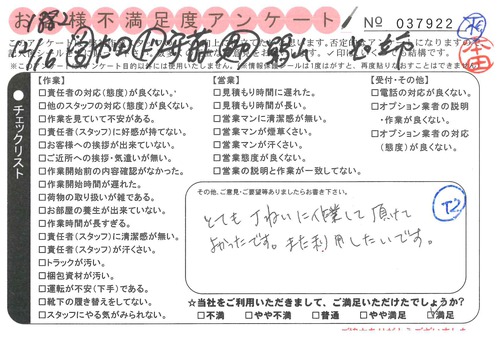 お客様不満足度アンケート
No 037922
本田
※このアンケートは作業目的以外には使用いたしません。
チェックリスト
【作業】
□責任者の対応(態度)が良くない。
□他のスタッフの対応(態度)が良くない。
□作業を見ていて不安がある。
□責任者(スタッフ)に好感が持てない。
□お客様への挨拶が出来ていない。
□ご近所への挨拶・気遣いが無い。
□作業開始前の内容確認がなかった。
□作業開始時間が遅れた。
□荷物の取り扱いが雑である。
□お部屋の養生が出来ていない。
□作業時間が長すぎる。
□責任者(スタッフ)に清潔感が無い。
□責任者(スタッフ)が汗くさい。
□トラックが汚い。
□梱包資材が汚い。
□運転が不安(下手)である。
□靴下の履き替えをしてない。
□スタッフにやる気がみられない。
【営業】
□見積もり時間に遅れた。
□見積もり時間が長い。
□営業マンに清潔感が無い。
□営業マンが煙草くさい。
□営業マンが汗くさい。
□営業態度が良くない。
□営業の説明と作業が一致してない。
【受付・その他】
□電話の対応が良くない。
□オプション業者の説明
・作業が良くない。
□オプション業者の対応
(態度)が良くない。
その他、ご意見・ご要望等ありましたらお書き下さい。
T2
とてもていねいに作業して頂けて
よかったです。また利用したいです。
☆当社をご利用いただきまして、ご満足いただけたでしょうか?
□不満 □やや不満 □普通 □やや満足 □満足
ご協力ありがとうございました